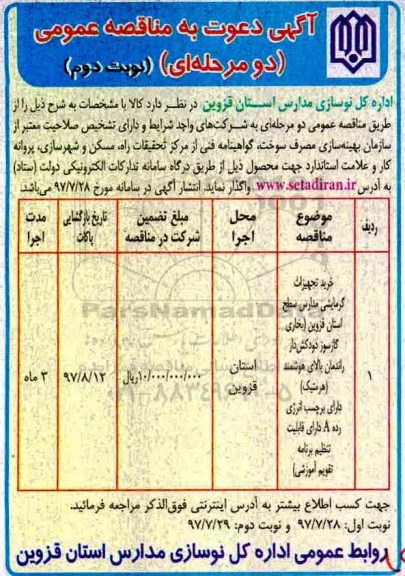 آگهی دعوت به مناقصه عمومی
(دو مرحله‌ای) (نوبت دوم)
اداره کل نوسازی مدارس استان قزوین در نظر دارد کالا با مشخصات به شرح ذیل را از
طریق مناقصه عمومی دو مرحله‌ای به شرکت‌های واجد شرایط و دارای تشخیص صلاحیت معتبر از
سازمان بهینه‌سازی مصرف سوخت، گواهینامه فنی از مرکز تحقیقات راه، مسکن و شهرسازی، پروانه
کار و علامت استاندارد جهت محصول ذیل از طریق درگاه سامانه تدارکات الکترونیکی دولت (ستاد)
به آدرس www.setadiran.ir واگذار نماید. انتشار آگهی در سامانه مورخ ۹۷/۷/۲۸ می‌باشد.
ردیف
موضوع مناقصه
محل اجرا
مبلغ تضمین شرکت در مناقصه
تاریخ بازگشایی پاکات
مدت اجرا
۱
خرید تجهیزات
گرمایشی مدارس سطح
استان قزوین (بخاری
گازسوز دودکش‌دار
راندمان بالای هوشمند
(هرمتیک)
دارای برچسب انرژی
رده A دارای قابلیت
تنظیم برنامه
تقویم آموزشی)
استان قزوین
۱۰/۰۰۰/۰۰۰/۰۰۰ریال
۹۷/۸/۱۲
۳ ماه
ParsNamadData
جهت کسب اطلاع بیشتر به آدرس اینترنتی فوق‌الذکر مراجعه فرمائید.
نوبت اول: ۹۷/۷/۲۸ و نوبت دوم: ۹۷/۷/۲۹
روابط عمومی اداره کل نوسازی مدارس استان قزوین